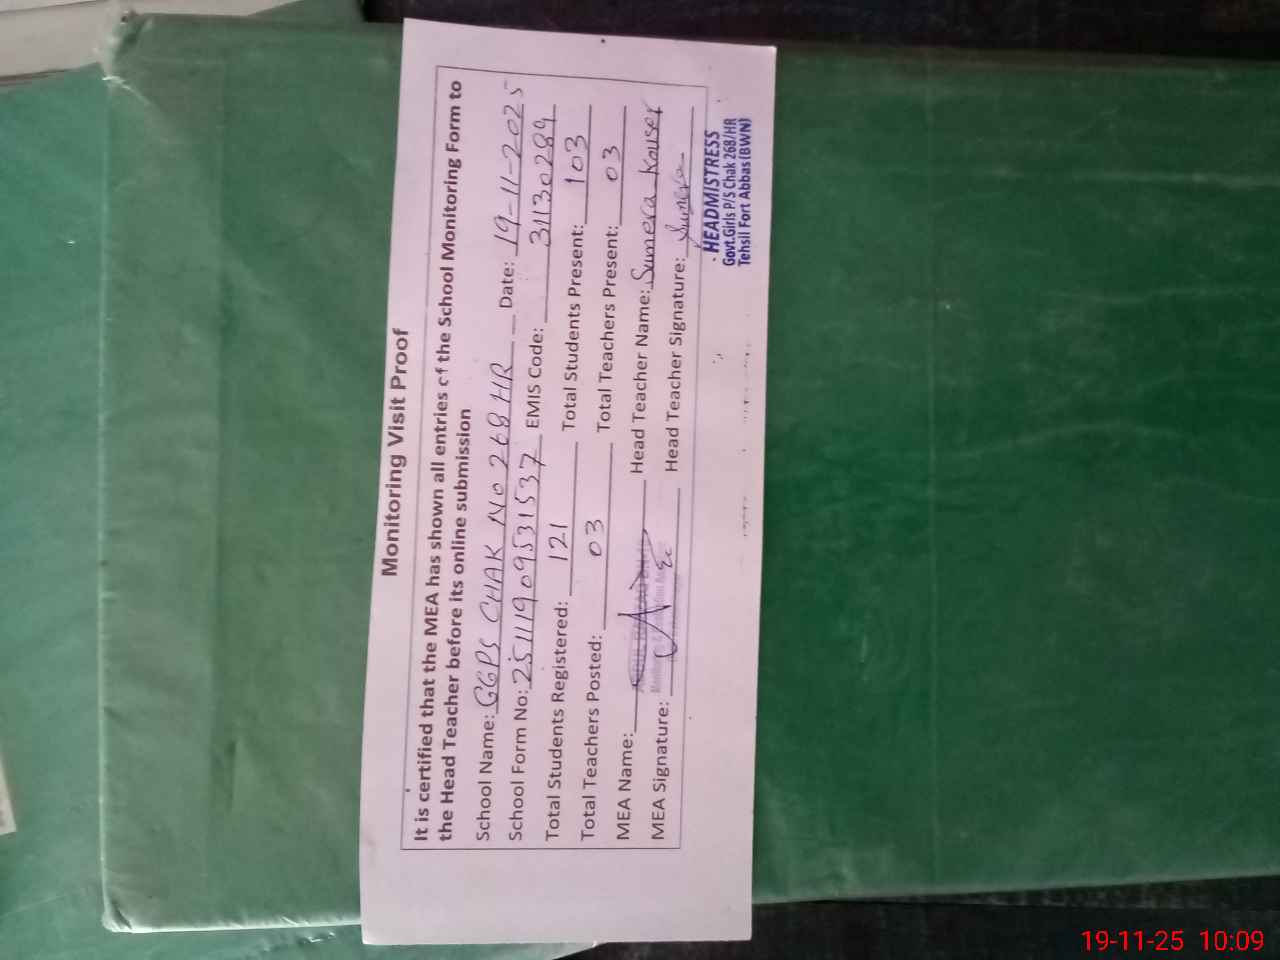 Monitoring Visit Proof
It is certified that the MEA has shown all entries of the School Monitoring Form to
the Head Teacher before its online submission
School Name: GGPS CHAK No 268 HR Date: 19-11-2025
School Form No: 2511190953 1537 EMIS Code: 31130284
Total Students Registered: 121 Total Students Present: 103
Total Teachers Posted: 03 Total Teachers Present: 03
MEA Name: Head Teacher Name: Sumera Kouser
MEA Signature: Head Teacher Signature: Sumera
HEADMISTRESS
Govt.Girls P/S Chak 268/HR
Tehsil Fort Abbas (BWN)
19-11-25 10:09